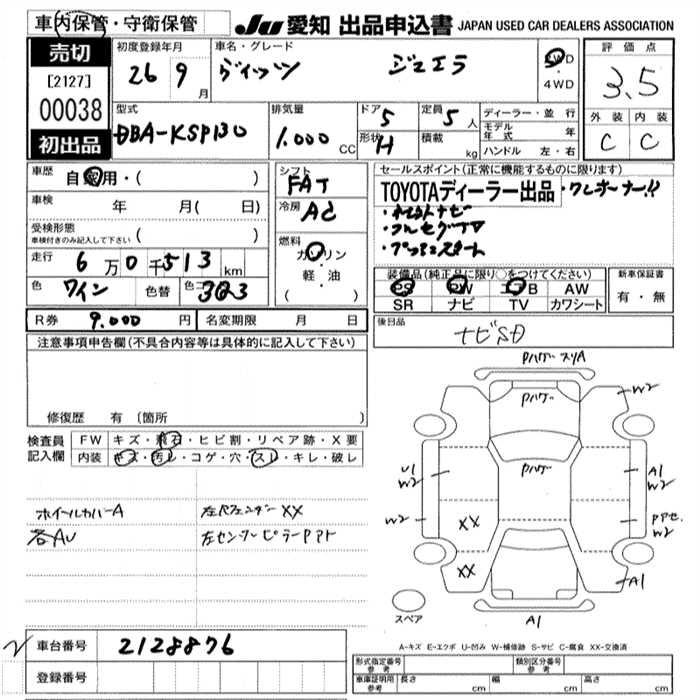 車内保管・守衛保管
JU 愛知 出品申込書 JAPAN USED CAR DEALERS ASSOCIATION
売切
[2127]
00038
初出品
初度登録年月
26 9月
車名・グレード
ヴィッツ ジュエラ
2WD
4WD
評価点
3.5
外装 内装
C C
型式
DBA-KSP130
排気量
1.000 CC
ドア 5
形状 H
定員 5人
積載 kg
ディーラー・並行
モデル年式 年
ハンドル 左・右
車歴
自家用・( )
車検 年 月( 日)
受検形態
車検付きのみ記入して下さい ( )
走行 6万0千513km
色 ワイン 色替 色コ 3Q3
シフト
FAT
冷房
AC
燃料
ガソリン
・軽・油
( )
セールスポイント(正常に機能するものに限ります)
TOYOTAディーラー出品・ワンオーナー!!
・ナビ
・フルセグTV
・プッシュスタート
装備品(純正品に限り○をつけてください)
PS PW エアB AW
SR ナビ TV カワシート
新車保証書
有・無
R券 9.000円 名変期限 月 日
後日品
ナビSD
注意事項申告欄(不具合内容等は具体的に記入して下さい)
修復歴 有 〔箇所 〕
検査員記入欄
FW キズ・飛石・ヒビ割・リペア跡・X要
内装 キズ・汚レ・コゲ・穴・スレ・キレ・破レ
ホイールカバーA
各AU
左Rフェンダー XX
左センターピラーPアト
PハゲースリA
Pハゲー
W2
U1
W2
Pハゲー
A1
W2
W2
XX
W2
XX
A1
A1
スペア
A-キズ E-エクボ U-凹み W-補修跡 S-サビ C-腐食 XX-交換済
車台番号 2128876
登録番号
形式指定番号 参考
類別区分番号 参考
車庫証明用 参考 長さ cm 幅 cm 高さ cm